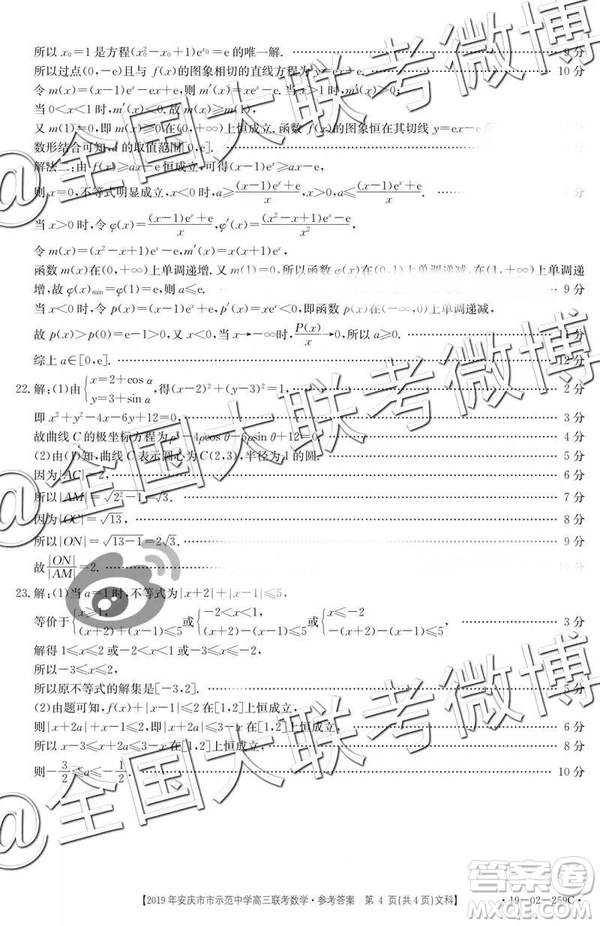 所以 x₀=1 是方程(x₀²-x₀+1)e^{x₀}=e 的唯一解. 9 分
所以过点(0,-e)且与 f(x)的图象相切的直线方程为 y=ex-e. 10 分
令 m(x)=(x-1)eˣ-ex+e,则 m′(x)=xeˣ-e,
当 0<x<1 时,m′(x)<0.故 m(x)
又 m(1)=0,在(0,+∞)上恒成立.函数 f(x)的图象恒在其切线 y=ex-e
数形结合可知,a 的取值范围[0,e].
解法二:由 f(x)≥ax-e 恒成立,可得(x-1)eˣ≥ax-e,
则 x=0,不等式明显成立,x<0 时,a≥((x-1)eˣ+e)/x
当 x>0 时,令 φ(x)=((x-1)eˣ+e)/x,φ′(x)=
令 m(x)=(x²-x+1)eˣ-e,m′(x)=(x²+x)eˣ,
函数 m(x)在(0,+∞)上单调递增.又 m(1)=0,所以函数 φ(x)在(0,1)上单调递减,在(1,+∞)上单调递
增,故 φ(x)min=φ(1)=e,则 a≤e. 9 分
当 x<0 时,令 p(x)=(x-1)eˣ+e,p′(x)=xeˣ<0,函数 p(x)在(-∞,0)上单调递减,
故 p(x)>p(0)=e-1>0,又 x→-∞时,P(x)/x→0,所以 a≥0.
综上 a∈[0,e]. 12 分
22.解:(1)由{x=2+cos α, y=3+sin α,得(x-2)²+(y-3)²=1. 2 分
即 x²+y²-4x-6y+12=0, 3 分
故曲线 C 的极坐标方程为 ρ²-4ρcos θ-6ρsin θ+12=0. 4 分
(2)由(1)知,曲线 C 表示圆心为 C(2,3),半径为 1 的圆. 5 分
因为|AC|=2, 6 分
所以|AM|=√(2²-1)=√3. 7 分
因为|OC|=√13, 8 分
所以|ON|=√(13-1)=2√3. 9 分
故|ON|/|AM|=2. 10 分
23.解:(1)当 a=1 时,不等式为|x+2|+|x-1|≤5,
等价于{x≥1, (x+2)+(x-1)≤5 或{-2<x<1, (x+2)-(x-1)≤5 或{x≤-2 -(x+2)-(x-1)≤5, 3 分
解得 1≤x≤2 或-2<x<1 或-3≤x≤-2,
所以-3≤x≤2,
所以原不等式的解集是[-3,2]. 5 分
(2)由题可知,|x+2a|+|x-1|≤2 在[1,2]上恒成立,
则|x+2a|+|x-1|≤2 在[1,2]上恒成立, 6 分
则|x+2a|≤3-x,x-3≤x+2a≤3-x 在[1,2]上恒成立, 7 分
所以 在[1,2]上恒成立, 8 分
则-3/2≤a≤-1/2. 10 分
【2019 年安庆市市示范中学高三联考数学·参考答案 第 4 页(共 4 页)文科】
·19-02-259C·
@全国大联考微博
@全国大联考微博
@全国大联考微博
答案圈
MXQE.COM